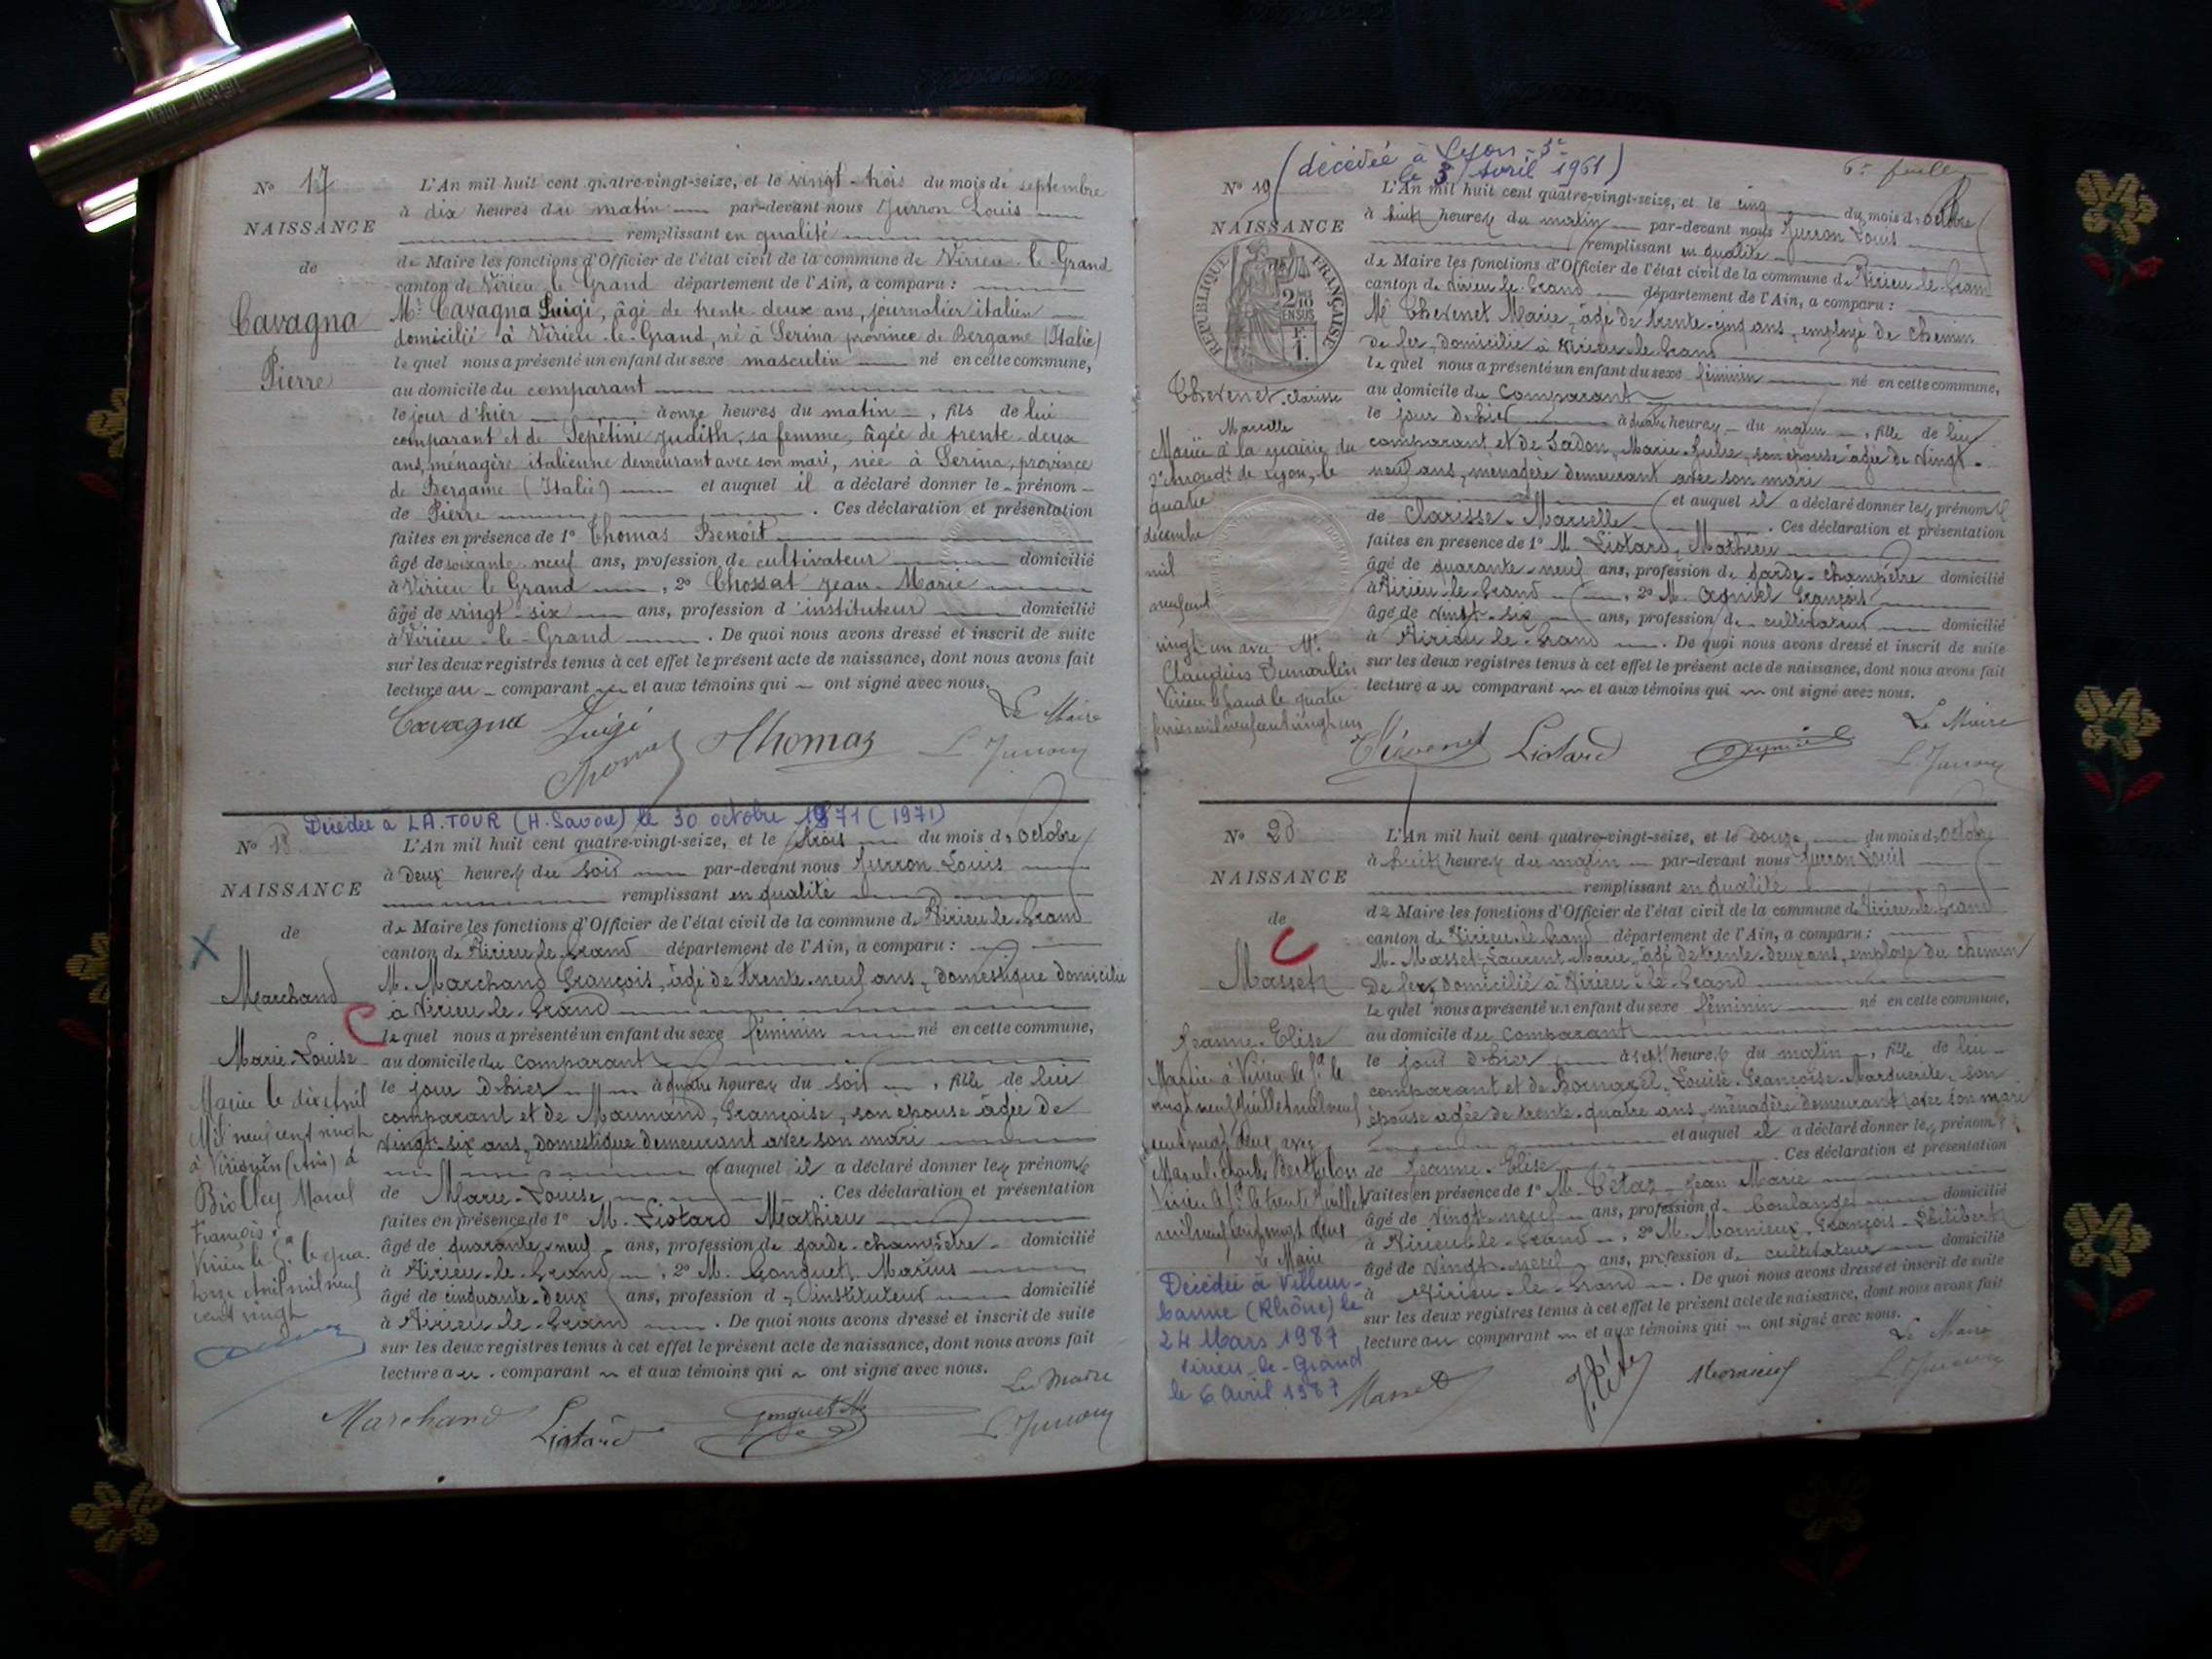 N° 17
NAISSANCE
de
Cavagna
Pierre
L'An mil huit cent quatre-vingt-seize, et le vingt-trois du mois de septembre
à dix heures du matin par-devant nous Jurron Louis
remplissant en qualité
de Maire les fonctions d'Officier de l'état civil de la commune de Virieu-le-Grand
canton de Virieu-le-Grand département de l'Ain, a comparu :
Mr Cavagna Luigi, âgé de trente-deux ans, journalier italien
domicilié à Virieu-le-Grand, né à Serina province de Bergame (Italie)
lequel nous a présenté un enfant du sexe masculin né en cette commune,
au domicile du comparant
le jour d'hier à onze heures du matin, fils de lui
comparant et de Sepétini Judith, sa femme, âgée de trente-deux
ans, ménagère italienne demeurant avec son mari, née à Serina, province
de Bergame (Italie) et auquel il a déclaré donner le prénom
de Pierre. Ces déclaration et présentation
faites en présence de 1° Thomas Benoît
âgé de soixante-neuf ans, profession de cultivateur domicilié
à Virieu le Grand, 2° Chossat Jean-Marie
âgé de vingt-six ans, profession d'instituteur domicilié
à Virieu-le-Grand. De quoi nous avons dressé et inscrit de suite
sur les deux registres tenus à cet effet le présent acte de naissance, dont nous avons fait
lecture au comparant et aux témoins qui ont signé avec nous.
Le Maire
Cavagna Luigi Thomas L. Jurron
Décédée à LA TOUR (H. Savoie) le 30 octobre 1971 (1971)
N° 18
NAISSANCE
de
Marchand
Marie-Louise
Mariée le dix Avril
Mil neuf cent vingt
à Virignin (Ain) à
Biolley Marcel
François
L'An mil huit cent quatre-vingt-seize, et le trois du mois d'octobre
à deux heures du soir par-devant nous Jurron Louis
remplissant en qualité
de Maire les fonctions d'Officier de l'état civil de la commune de Virieu-le-Grand
canton de Virieu-le-Grand département de l'Ain, a comparu :
M. Marchand François, âgé de trente-neuf ans, domestique domicilié
à Virieu-le-Grand
lequel nous a présenté un enfant du sexe féminin né en cette commune,
au domicile du comparant
le jour d'hier à quatre heures du soir, fille de lui
comparant et de Maunand, Françoise, son épouse âgée de
vingt-six ans, domestique demeurant avec son mari
et auquel il a déclaré donner les prénoms
de Marie-Louise. Ces déclaration et présentation
faites en présence de 1° M. Liotard Mathieu
âgé de quarante-neuf ans, profession de garde-champêtre domicilié
à Virieu-le-Grand, 2° M. Gonguet Marius
âgé de cinquante-deux ans, profession d'instituteur domicilié
à Virieu-le-Grand. De quoi nous avons dressé et inscrit de suite
sur les deux registres tenus à cet effet le présent acte de naissance, dont nous avons fait
lecture au comparant et aux témoins qui ont signé avec nous.
Le Maire
Marchand Liotard Gonguet M L. Jurron
6e feuille
(décédée à Lyon-3e
le 3 Avril 1961)
N° 19
NAISSANCE
RÉPUBLIQUE FRANÇAISE
2/10 EN SUS
F. 1.
Thevenet Clarisse
Marcelle
Mariée à la mairie du
2e Arrondt de Lyon, le
quatre
décembre
mil
neuf cent
vingt un avec Mr
Claudius Dumoulin
L'An mil huit cent quatre-vingt-seize, et le cinq du mois d'octobre
à huit heures du matin par-devant nous Jurron Louis
remplissant en qualité
de Maire les fonctions d'Officier de l'état civil de la commune de Virieu-le-Grand
canton de Virieu-le-Grand département de l'Ain, a comparu :
Mr Thevenet Marie, âgé de trente-cinq ans, employé de chemin
de fer, domicilié à Virieu-le-Grand
lequel nous a présenté un enfant du sexe féminin né en cette commune,
au domicile du comparant
le jour d'hier à quatre heures du matin, fille de lui
comparant et de Ladon, Marie-Julie, son épouse âgée de vingt-
neuf ans, ménagère demeurant avec son mari
et auquel il a déclaré donner les prénoms
de Clarisse-Marcelle. Ces déclaration et présentation
faites en présence de 1° M. Liotard, Mathieu
âgé de quarante-neuf ans, profession de garde-champêtre domicilié
à Virieu-le-Grand, 2° M. François
âgé de vingt-six ans, profession de cultivateur domicilié
à Virieu-le-Grand. De quoi nous avons dressé et inscrit de suite
sur les deux registres tenus à cet effet le présent acte de naissance, dont nous avons fait
lecture au comparant et aux témoins qui ont signé avec nous.
Le Maire
Thévenet Liotard L. Jurron
N° 20
NAISSANCE
de
Masset
Jeanne-Elise
Mariée à Virieu le Gd le
vingt neuf Juillet mil neuf
cent vingt deux avec
Marcel Charles Berthelon
Virieu le Gd le trente Juillet
mil neuf cent vingt deux
Le Maire
Décédée à Villeur-
banne (Rhône) le
24 Mars 1987
Virieu-le-Grand
le 6 Avril 1987
L'An mil huit cent quatre-vingt-seize, et le douze du mois d'octobre
à huit heures du matin par-devant nous Jurron Louis
remplissant en qualité
de Maire les fonctions d'Officier de l'état civil de la commune de Virieu-le-Grand
canton de Virieu-le-Grand département de l'Ain, a comparu :
M. Masset, Laurent-Marie, âgé de trente-deux ans, employé du chemin
de fer, domicilié à Virieu-le-Grand
lequel nous a présenté un enfant du sexe féminin né en cette commune,
au domicile du comparant
le jour d'hier à sept heures du matin, fille de lui
comparant et de Bornarel, Louise-Françoise-Marguerite, son
épouse âgée de trente-quatre ans, ménagère demeurant avec son mari
et auquel il a déclaré donner les prénoms
de Jeanne-Elise. Ces déclaration et présentation
faites en présence de 1° M. Tétaz Jean Marie
âgé de vingt-neuf ans, profession de boulanger domicilié
à Virieu-le-Grand, 2° M. Mornieux, François-Philibert
âgé de vingt-neuf ans, profession de cultivateur domicilié
à Virieu-le-Grand. De quoi nous avons dressé et inscrit de suite
sur les deux registres tenus à cet effet le présent acte de naissance, dont nous avons fait
lecture au comparant et aux témoins qui ont signé avec nous.
Le Maire
Masset Mornieux L. Jurron